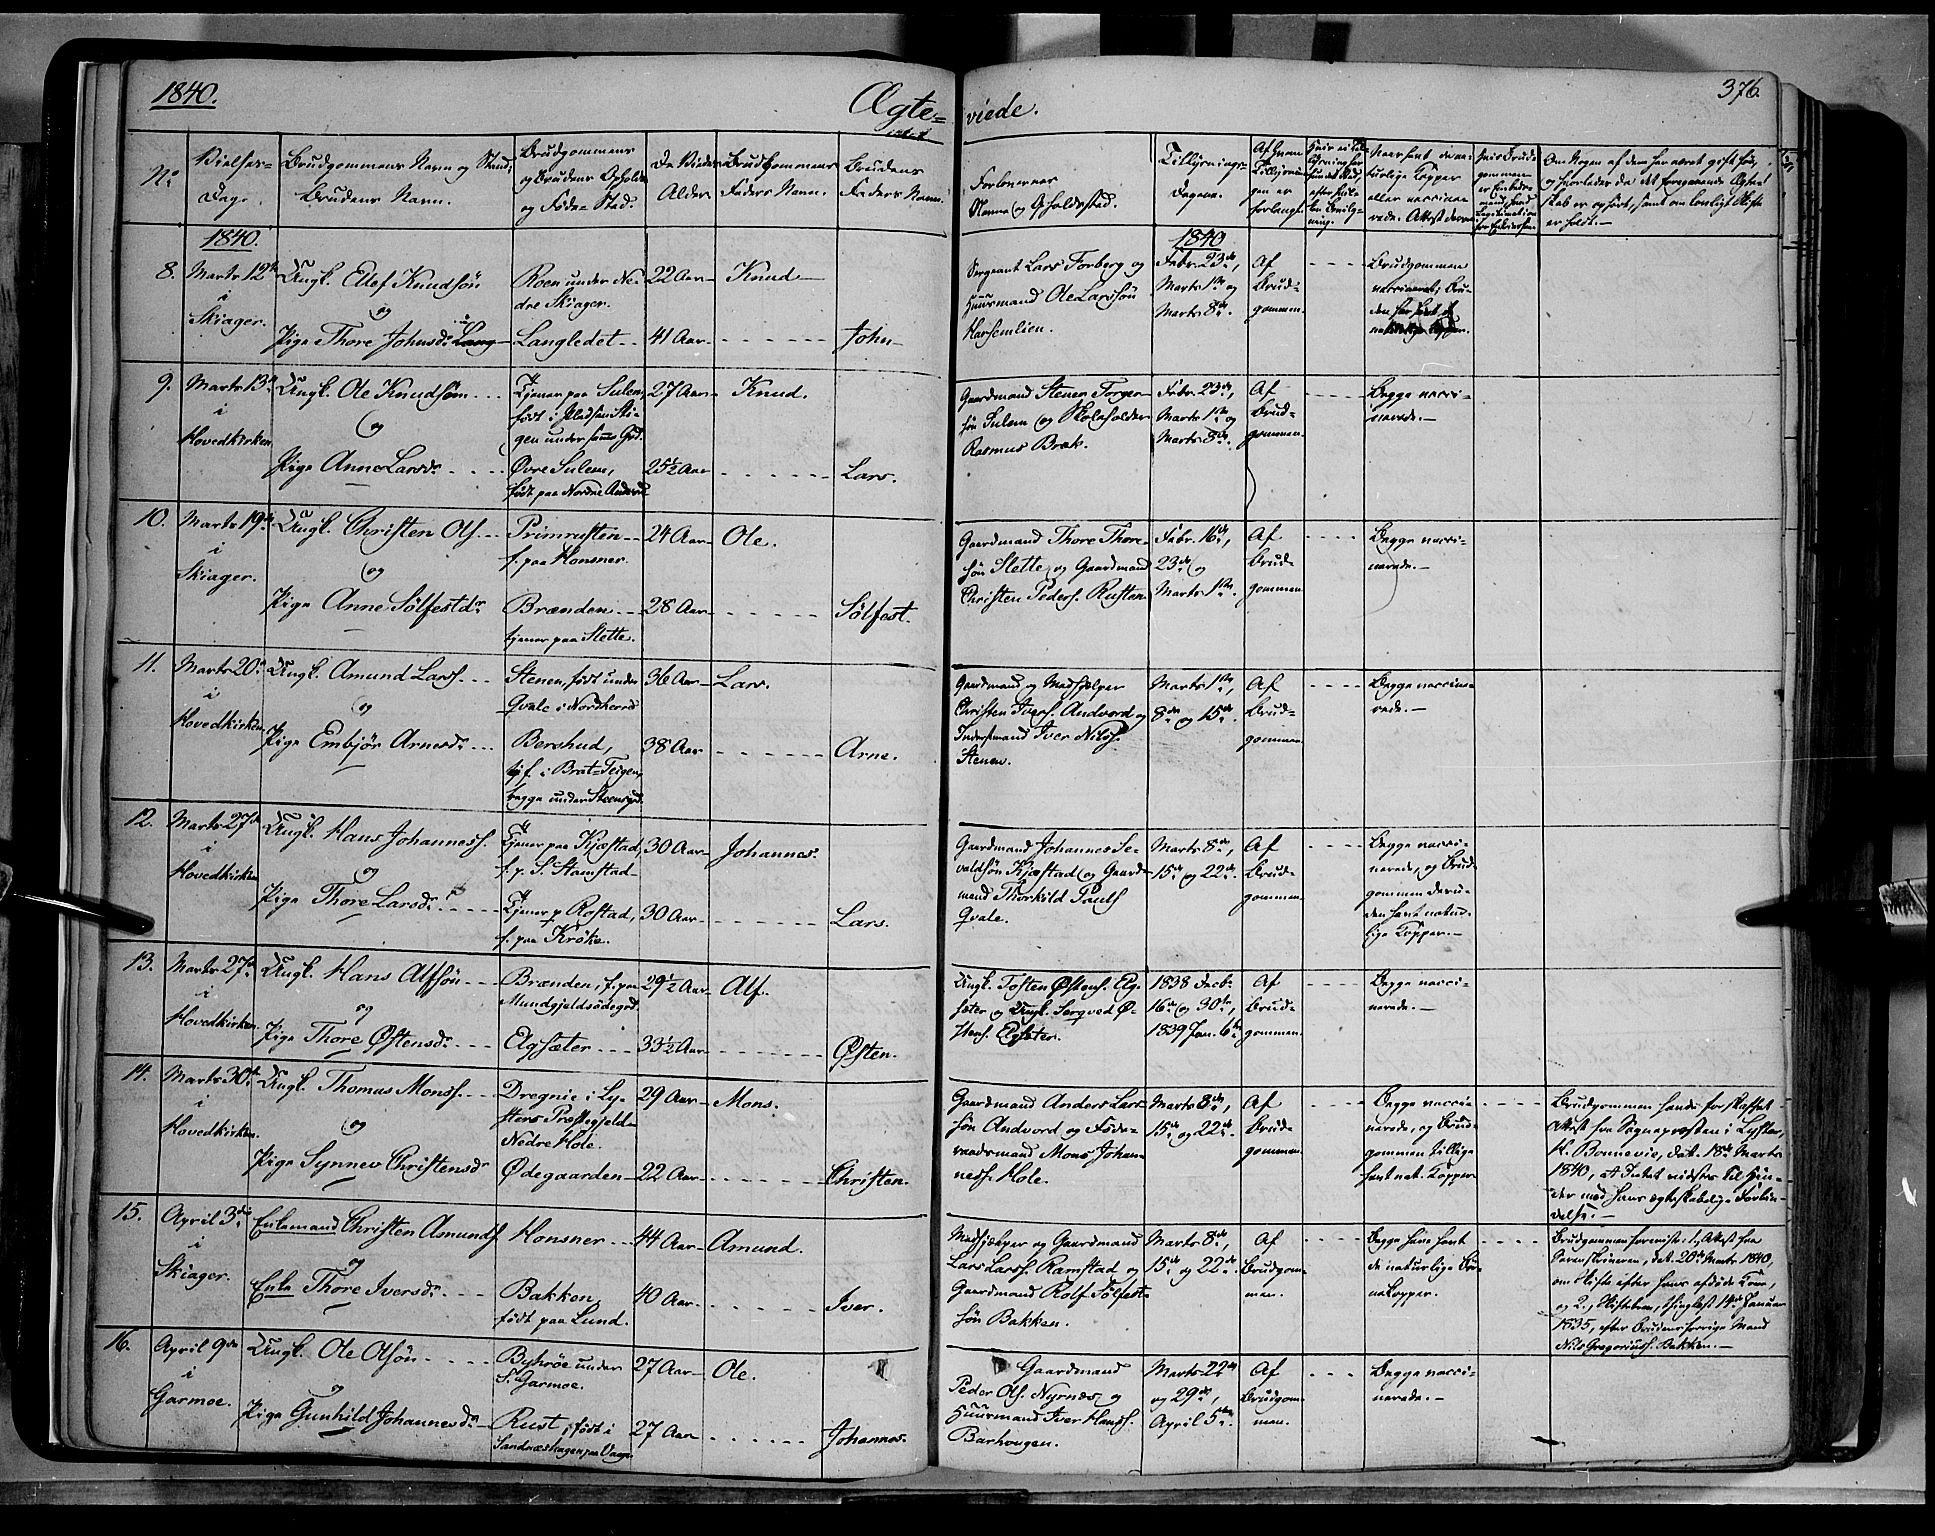 1840.
Ægte=
viede.
376.
No
Vielses=
Dag.
Brudgommens Navn og Stand;
Brudens Navn.
Brudgommens
og Brudens Opholds
og Føde=Stad.
De Viedes
Alder
Brudgommens
Faders Navn.
Brudens
Faders Navn.
Forlovernes
Navne og Opholdsted.
Tillysnings-
Dagene.
Af hvem
Tillysnin-
gen er
forlangt.
Naar havt de na-
turlige Kopper
eller vaccine-
rede. Attest derom
Om Nogen af dem har været gift før,
og hvorledes da det foregaaende Ægte-
skab er ophørt, samt om lovligt Skifte
er holdt.
1840.
8.
Marts 12te
i
Skiager.
Ungk. Elef Knudsøn
og
Pige Thore Johnsd.
Roen under Ne-
dre Skiager.
Langledet
22 Aar
41 Aar
Knud
John
Sergeant Lars Forberg og
Huusmand Ole Larssøn
Harsemlien.
1840
Febr. 23de,
Marts 1ste og
Marts 8de.
Af
Brud-
gommen.
Brudgommen
vaccineret; Bru-
den har havt de
naturlige Kopper.
9.
Marts 13de
i
Hovedkirken
Ungk. Ole Knudsøn
og
Pige Anne Larsd.
Tjener paa Sulem,
født i Pladsen Sti-
gen under samme Gd.
Øvre Sulem,
født paa Nordre Andvord
27 Aar
25½ Aar
Knud.
Lars.
Gaardmand Stener Torger-
søn Sulem og Skoleholder
Rasmus Bræk.
Febr. 23de,
Marts 1ste og
Marts 8de.
Af
Brud-
gommen.
Begge vacci-
nerede.
10.
Marts 19de
i
Skiager.
Ungk. Christen Ols.
og
Pige Anne Sølfestdr
Primrusten
f. paa Honsner.
Brænden
tjener paa Slette.
24 Aar
28 Aar
Ole.
Sølfest.
Gaardmand Thore Thore-
søn Slette og Gaardmand
Christen Peders. Rusten
Febr. 16de,
23de og
Marts 1ste.
Af
Brud-
gommen.
Begge vacci-
nerede.
11.
Marts 20de
i
Hovedkirken
Ungk. Amund Lars.
og
Pige Embjør Arnesd.
Stenen, født under
Qvale i Nordherred
Bershud,
f. i Brat-Teigen,
begge under Steensgrd.
36 Aar
38 Aar
Lars.
Arne.
Gaardmand og Medhjælper
Christen Ivers. Andvord og
Inderstmand Iver Nils.
Stenen.
Marts 1ste,
8de og 15de.
Af
Brud-
gommen
Begge vaccine-
rede.
12.
Marts 27de
i
Hovedkirken
Ungk. Hans Johanness.
og
Pige Thore Larsd.
Tjener paa Kjæstad,
f. p. S. Stamstad
Tjener p Rostad,
f. paa Krøke.
30 Aar
30 Aar
Johannes.
Lars.
Gaardmand Johannes Se-
valdsøn Kjæstad og Gaard-
mand Thorkild Pauls
Qvale.
Marts 8de,
15de og 22de.
Af
Brud-
gommen.
Begge vacci-
nerede, og Brud-
gommen desu-
den havt natur-
lige Kopper.
13.
Marts 27de
i
Hovedkirken.
Ungk. Hans Alfsøn
og
Pige Thore Østensd.
Brænden, f. paa
Mundgjeldsødegrd.
Elgsæter
29½ Aar
33½ Aar
Alf.
Østen.
Ungk. Tosten Østens. Elg-
sæter og Ungk. Sergved Ø-
stens. Elgsæter.
1838 Decbr.
16de og 30te,
1839 Jan. 6te
Af
Brud-
gommen.
Begge vacci-
nerede.
14.
Marts 30te
i
Hovedkirken.
Ungk. Thomas Mons.
og
Pige Synnev Christensd.
Dregnie i Ly-
sters Præstegjeld
Nedre Hole.
Ødegaarden
29 Aar
22 Aar
Mons.
Christen.
Gaardmand Anders Lars-
søn Andvord og Føde-
raadsmand Mons Johan-
ness. Hole.
Marts 8de,
15de og 22de.
Af
Brud-
gommen
Begge vacci-
nerede, og Brud-
gommen tillige
havt nat. Kopper
Brudgommen havde forskaffet
Attest fra Sognepræsten i Lyster,
Hr. Bonnevie, dat. 18de Marts
1840, at Intet vidstes til Hin-
der mod hans ægteskabelige Forbin-
delse.
15.
April 3de
i
Skiager.
Enkemand Christen Amunds.
og
Enke Thore Iversd.
Honsner
Bakken,
født paa Lund.
44 Aar
40 Aar
Amund.
Iver.
Medhjælper og Gaardmand
Lars Lars. Ramstad og
Gaardmand Rolf Sølfest-
søn Bakken.
Marts 8de,
15de og 22de.
Af
Brudgom-
men.
Begge have havt
de naturlige Bør-
nekopper.
Brudgommen foreviste: 1, Attest fra
Sorenskriveren, dat. 20de Marts 1840,
om Skifte efter hans afdøde Kone,
og 2, Skiftebrev, thinglæst 14de Januar
1835, efter Brudens forrige Mand
Nils Gregoriuss. Bakken.
16.
April 9de
i
Garmoe.
Ungk. Ole Olsøn
og
Pige Gunhild Johannesd.
Byhrøe under
S. Garmoe.
Rust, født i
Sandnæshagen paa Vaage
27 Aar
27 Aar
Ole.
Johannes.
Gaardmand
Peder Ols. Nyrnæs og
Huusmand Iver Hanss.
Barhougen.
Marts 22de
og 29de,
April 5te.
Af
Brudgom-
men.
Begge vacci-
nerede.